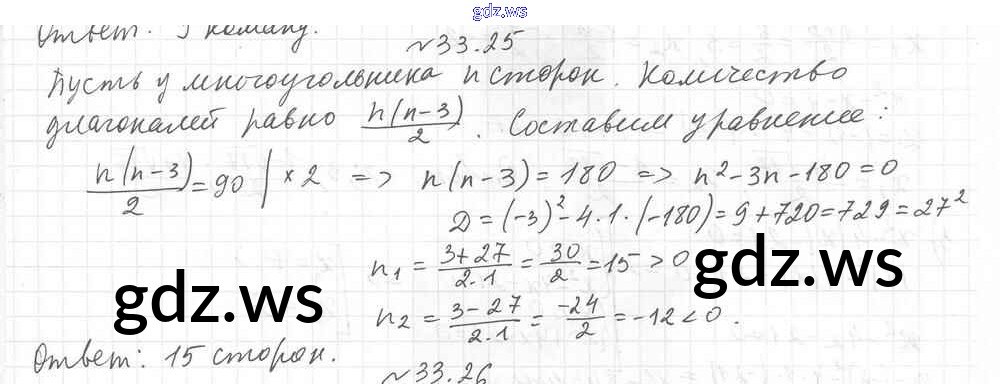 gdz.ws
Ответ: 9 команд.
№33.25
Пусть у многоугольника n сторон. Количество
диагоналей равно n(n-3)/2. Составим уравнение:
n(n-3)/2 = 90 | × 2 => n(n-3) = 180 => n²-3n-180=0
D = (-3)²-4·1·(-180) = 9+720=729=27²
n₁ = (3+27)/(2·1) = 30/2 = 15 > 0
n₂ = (3-27)/(2·1) = -24/2 = -12 < 0.
gdz.ws
gdz.ws
Ответ: 15 сторон.
№33.26